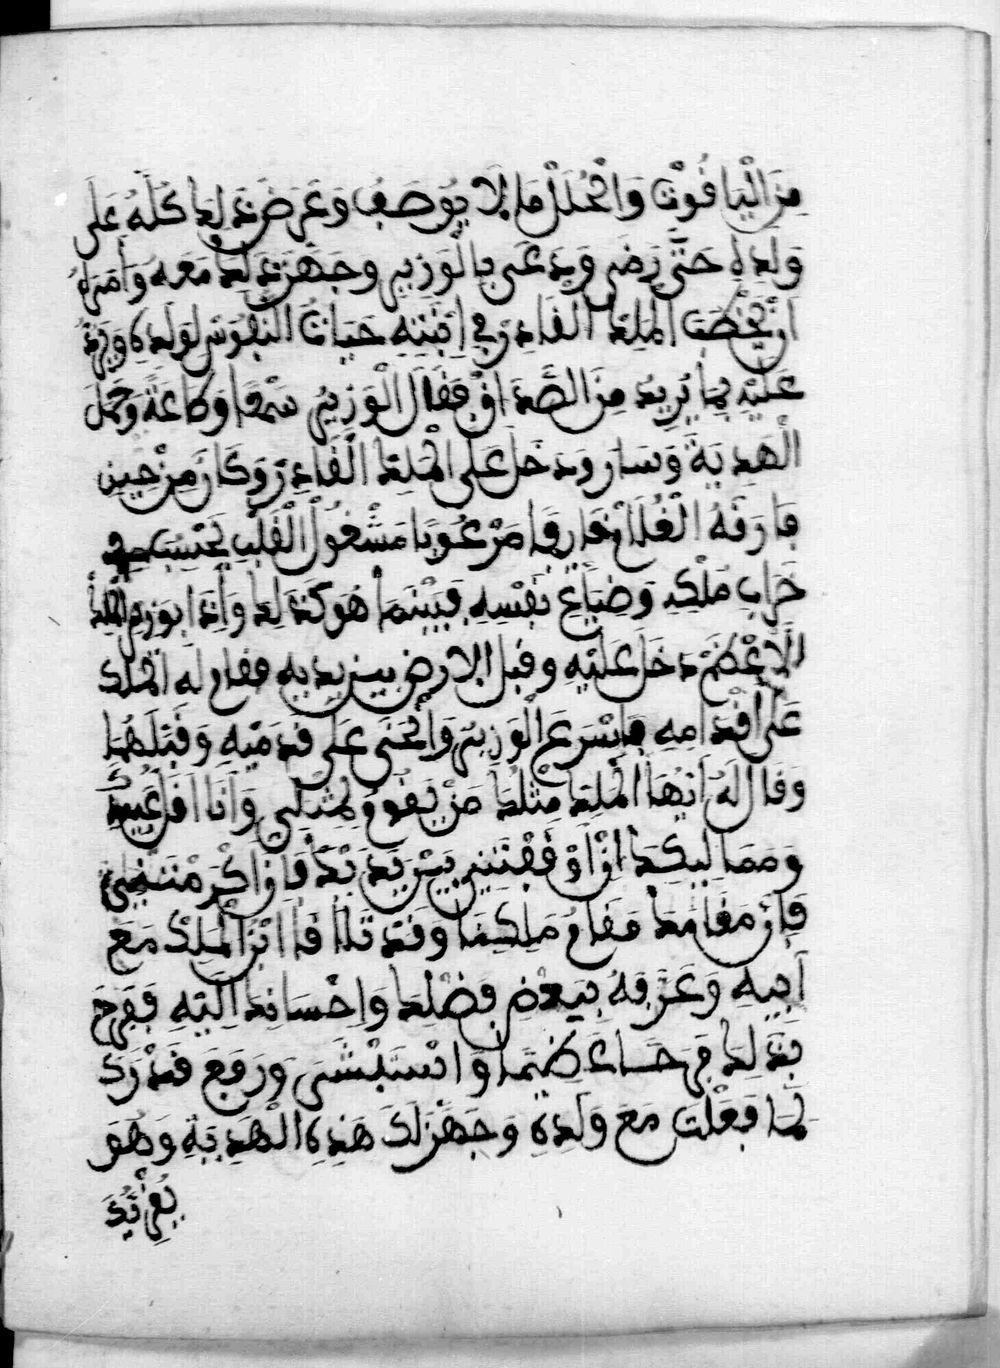 مِنَ الْيَاقُوتِ وَالْحُلَلِ مَا لَا يُوصَفُ وَعَرَضَ ذَلِكَ كُلَّهُ عَلَى
وَلَدِهِ حَتَّى رَضِيَ وَدَعَى بِالْوَزِيرِ وَجَهَّزَ ذَلِكَ مَعَهُ وَأَمَرَهُ
أَنْ يَخْطُبَ الْمَلِكَ الْقَادِرَ فِي ابْنَتِهِ حَيَاتَ النُّفُوسِ لِوَلَدِهِ وَيَزِدْ
عَلَيْهِ بِمَا يُرِيدُ مِنَ الصَّدَاقِ فَقَالَ الْوَزِيرُ سَمْعًا وَطَاعَةً وَحَمَلَ
الْهَدِيَةَ وَسَارَ وَدَخَلَ عَلَى الْمَلِكِ الْقَادِرِ وَكَانَ مِنْ حِينِ
فَارَقَهُ الْغُلَامُ فَارَقَهُ مَرْعُوبًا مَشْغُولَ الْقَلْبِ يَحْسِبُ فِي
خَرَابِ مُلْكِهِ وَضِيَاعِ نَفْسِهِ فَبَيْنَمَا هُوَ كَذَلِكَ وَإِذَا بِوَزِيرِ الْمَلِكِ
الْأَعْظَمِ دَخَلَ عَلَيْهِ وقبل الارض بين يديه فقام له الملك
عَلَى أَقْدَامِهِ فَاسْرَعَ الْوَزِيرُ وَانْحَنَى عَلَى قَدَمَيْهِ وَقَبَّلَهُمَا
وَقَالَ لَهُ أَيُّهَا الْمَلِكُ مِثْلُكَ مَنْ يَقُومُ لِمِثْلِي وَأَنَا أَقَلُّ عَبِيدِكَ
وَمَمَالِيكِكَ إِنْ أَوْقَفْتَنِي بَيْنَ يَدَيْكَ فَإِنْ أَكْرَمْتَنِي
فَإِنَّ مَقَامَكَ مَقَامُ مَلِكِنَا وَقَدْ تَلَاقَا ابْنُ الْمَلِكِ مَعَ
أَبِيهِ وَعَرَّفَهُ بِبَعْضِ فَضْلِكَ وَإِحْسَانِكَ إِلَيْهِ فَفَرِحَ
بِذَلِكَ فَرَحًا عَظِيمًا وَاسْتَبْشَرَ وَرَفَعَ قَدْرَكَ
لِمَا فَعَلْتَ مَعَ وَلَدِهِ وَجَهَّزَ لَكَ هَذِهِ الْهَدِيَةَ وَهُوَ
يُقْرِئُكَ